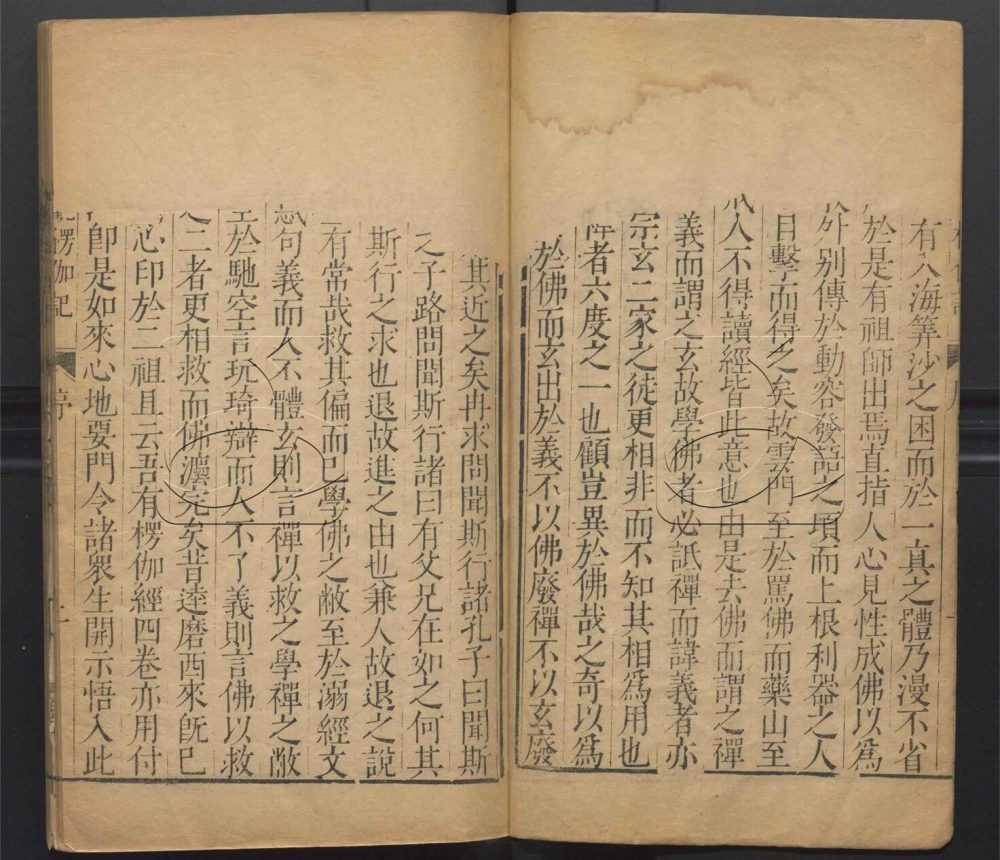 有八海筭沙之困而於一真之體乃漫不省
於是有祖師出焉直指人心見性成佛以爲
外别傳於動容發語之頃而上根利器之人
目擊而得之矣故雲門至於罵佛而藥山至
人不得讀經皆此意也由是去佛而謂之禪
義而謂之玄故學佛者必詆禪而諱義者亦
宗玄二家之徒更相非而不知其相爲用也
者六度之一也顧豈異於佛哉之奇以爲
於佛而玄出於義不以佛廢禪不以玄廢
其近之矣冉求問聞斯行諸孔子曰聞斯
之子路問聞斯行諸曰有父兄在如之何其
斯行之求也退故進之由也兼人故退之說
有常哉救其偏而已學佛之敝至於溺經文
惑句義而人不體玄則言禪以救之學禪之敝
至於馳空言玩琦辯而人不了義則言佛以救
之二者更相救而佛灋完矣昔逹磨西來旣已
心印於二祖且云吾有楞伽經四卷亦用付
卽是如來心地要門令諸衆生開示悟入此
楞伽記
序